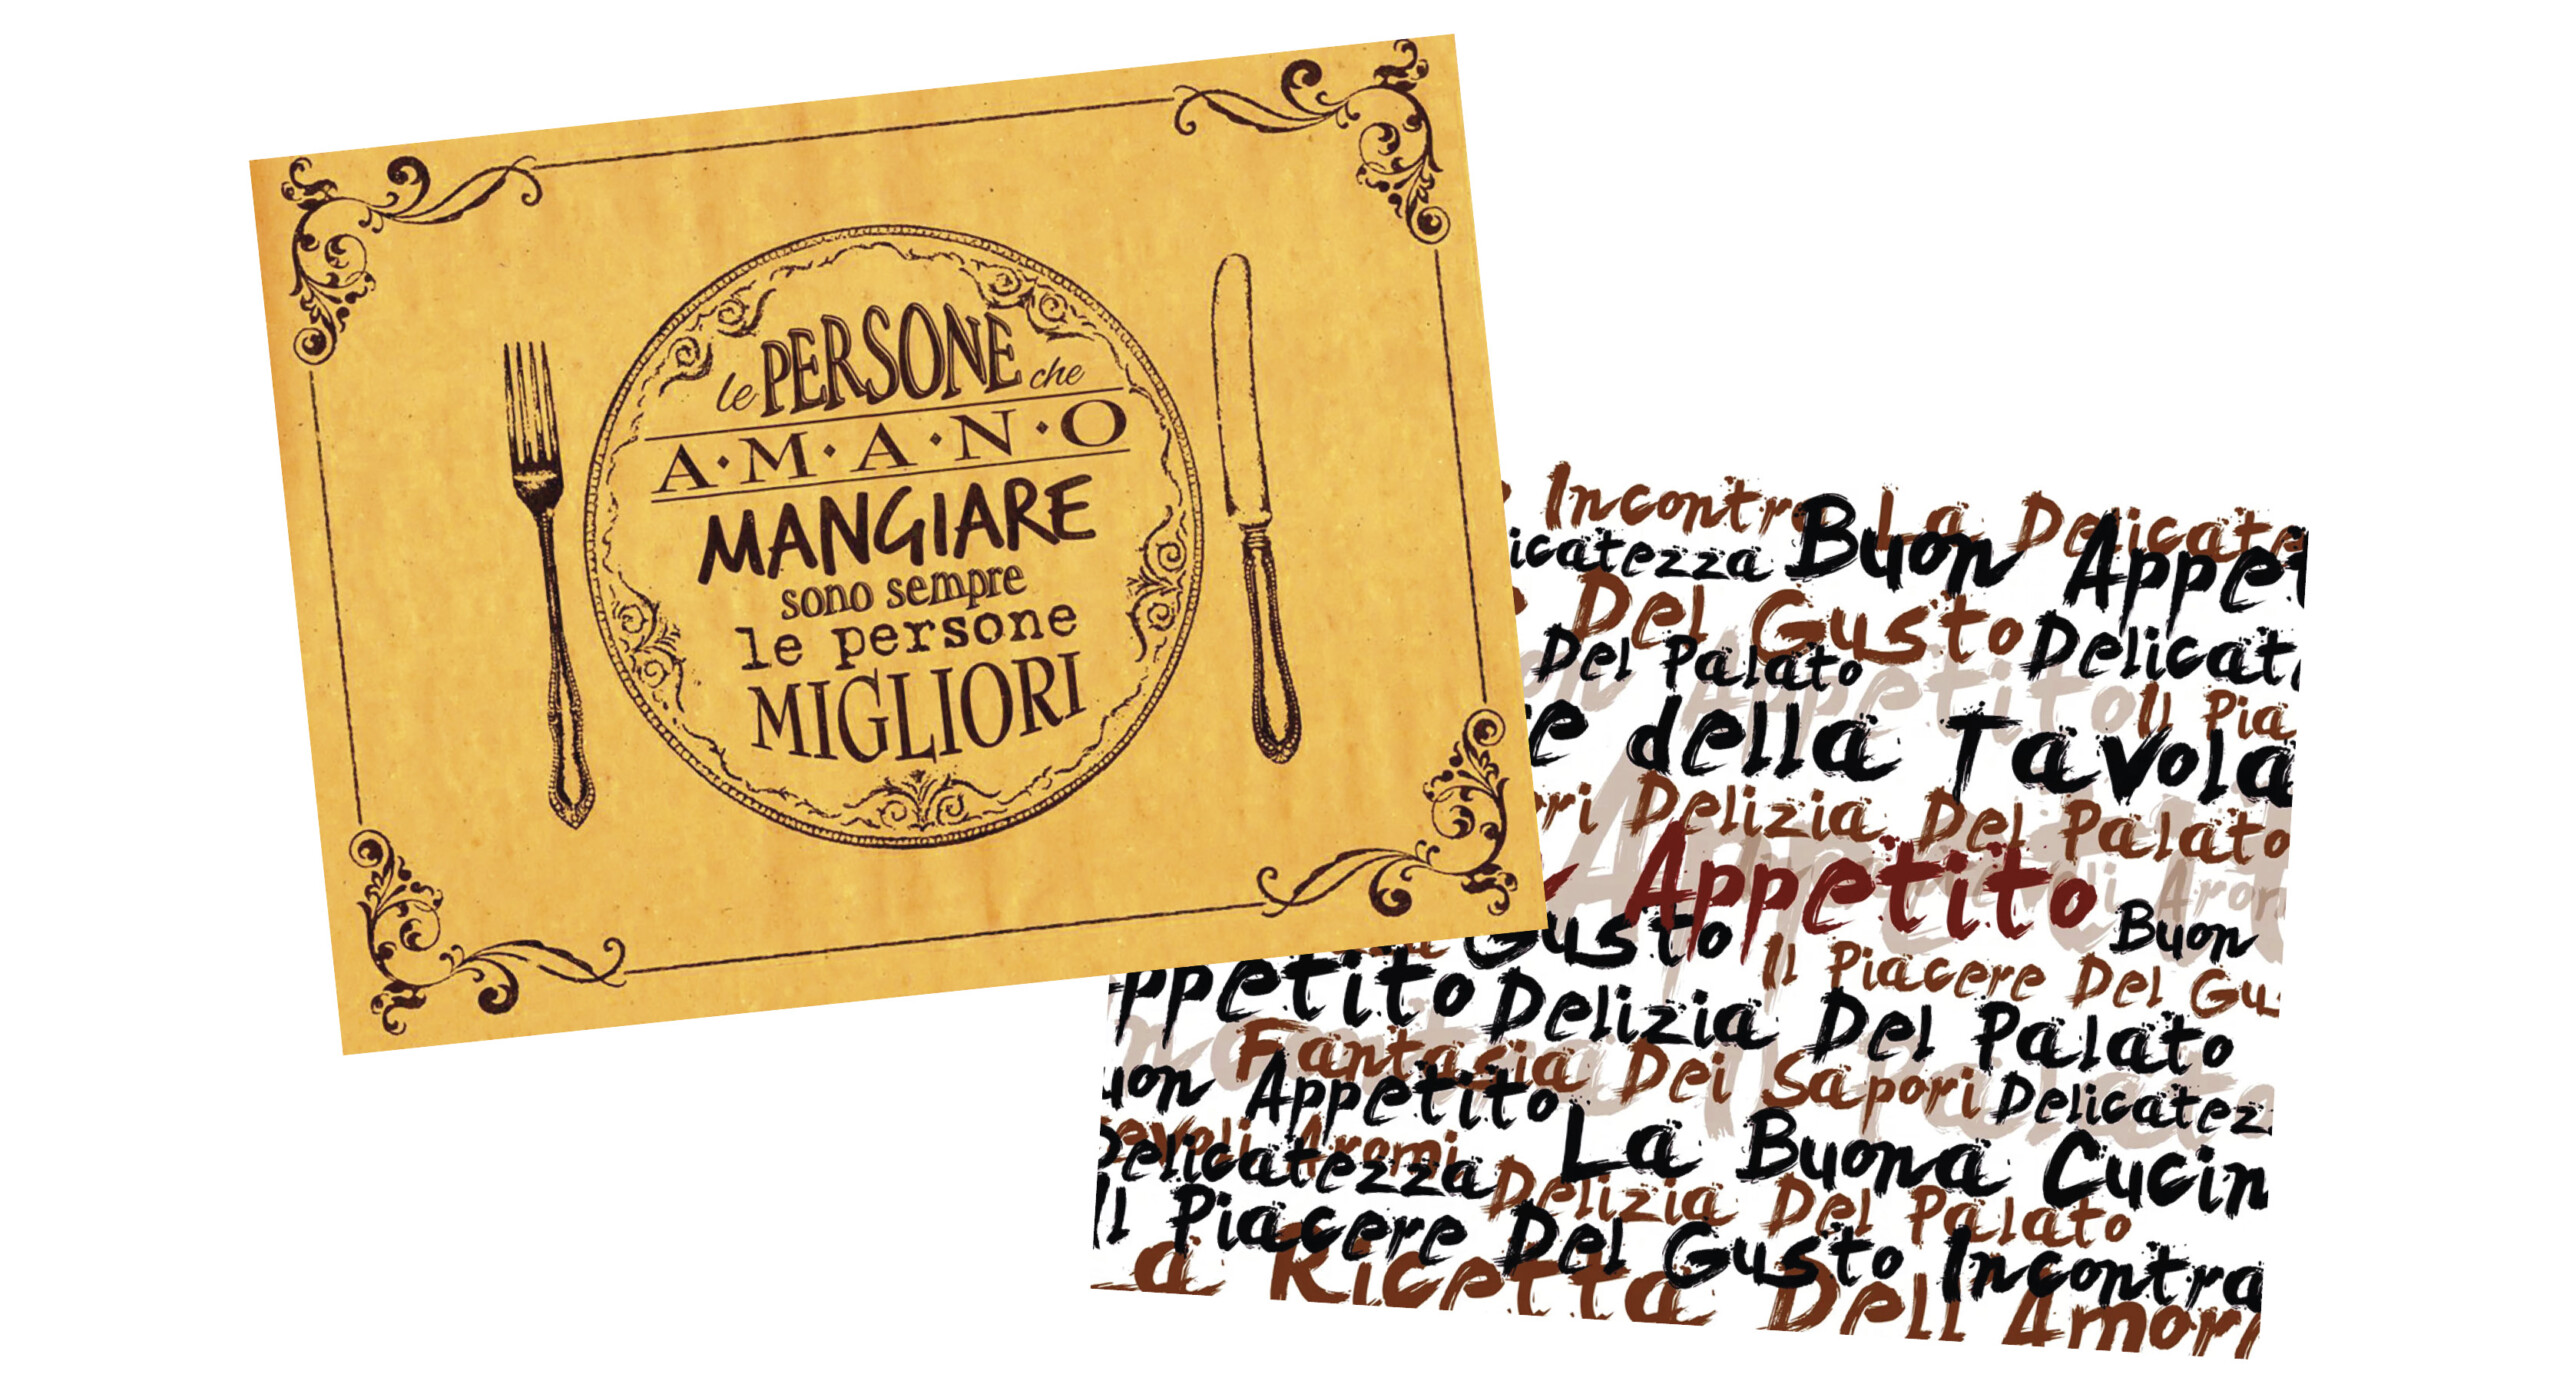 le PERSONE che
A·M·A·N·O
MANGIARE
sono sempre
le persone
MIGLIORI
Incontra La Delicate
icatezza Buon Appet
Del Gusto
Del Palato Delicat
Appetito Il Pia
e della Tavola
ri Delizia Del Palato
Appetito Buon
Gusto Il Piacere Del Gu
ppetito Delizia Del Palato
Fantasia Dei Sapori Delicatez
uon Appetito La Buona Cucin
evoli Aromi
Delicatezza Delizia Del Palato
Il Piacere Del Gusto Incontra
a Ricetta Dell Amor